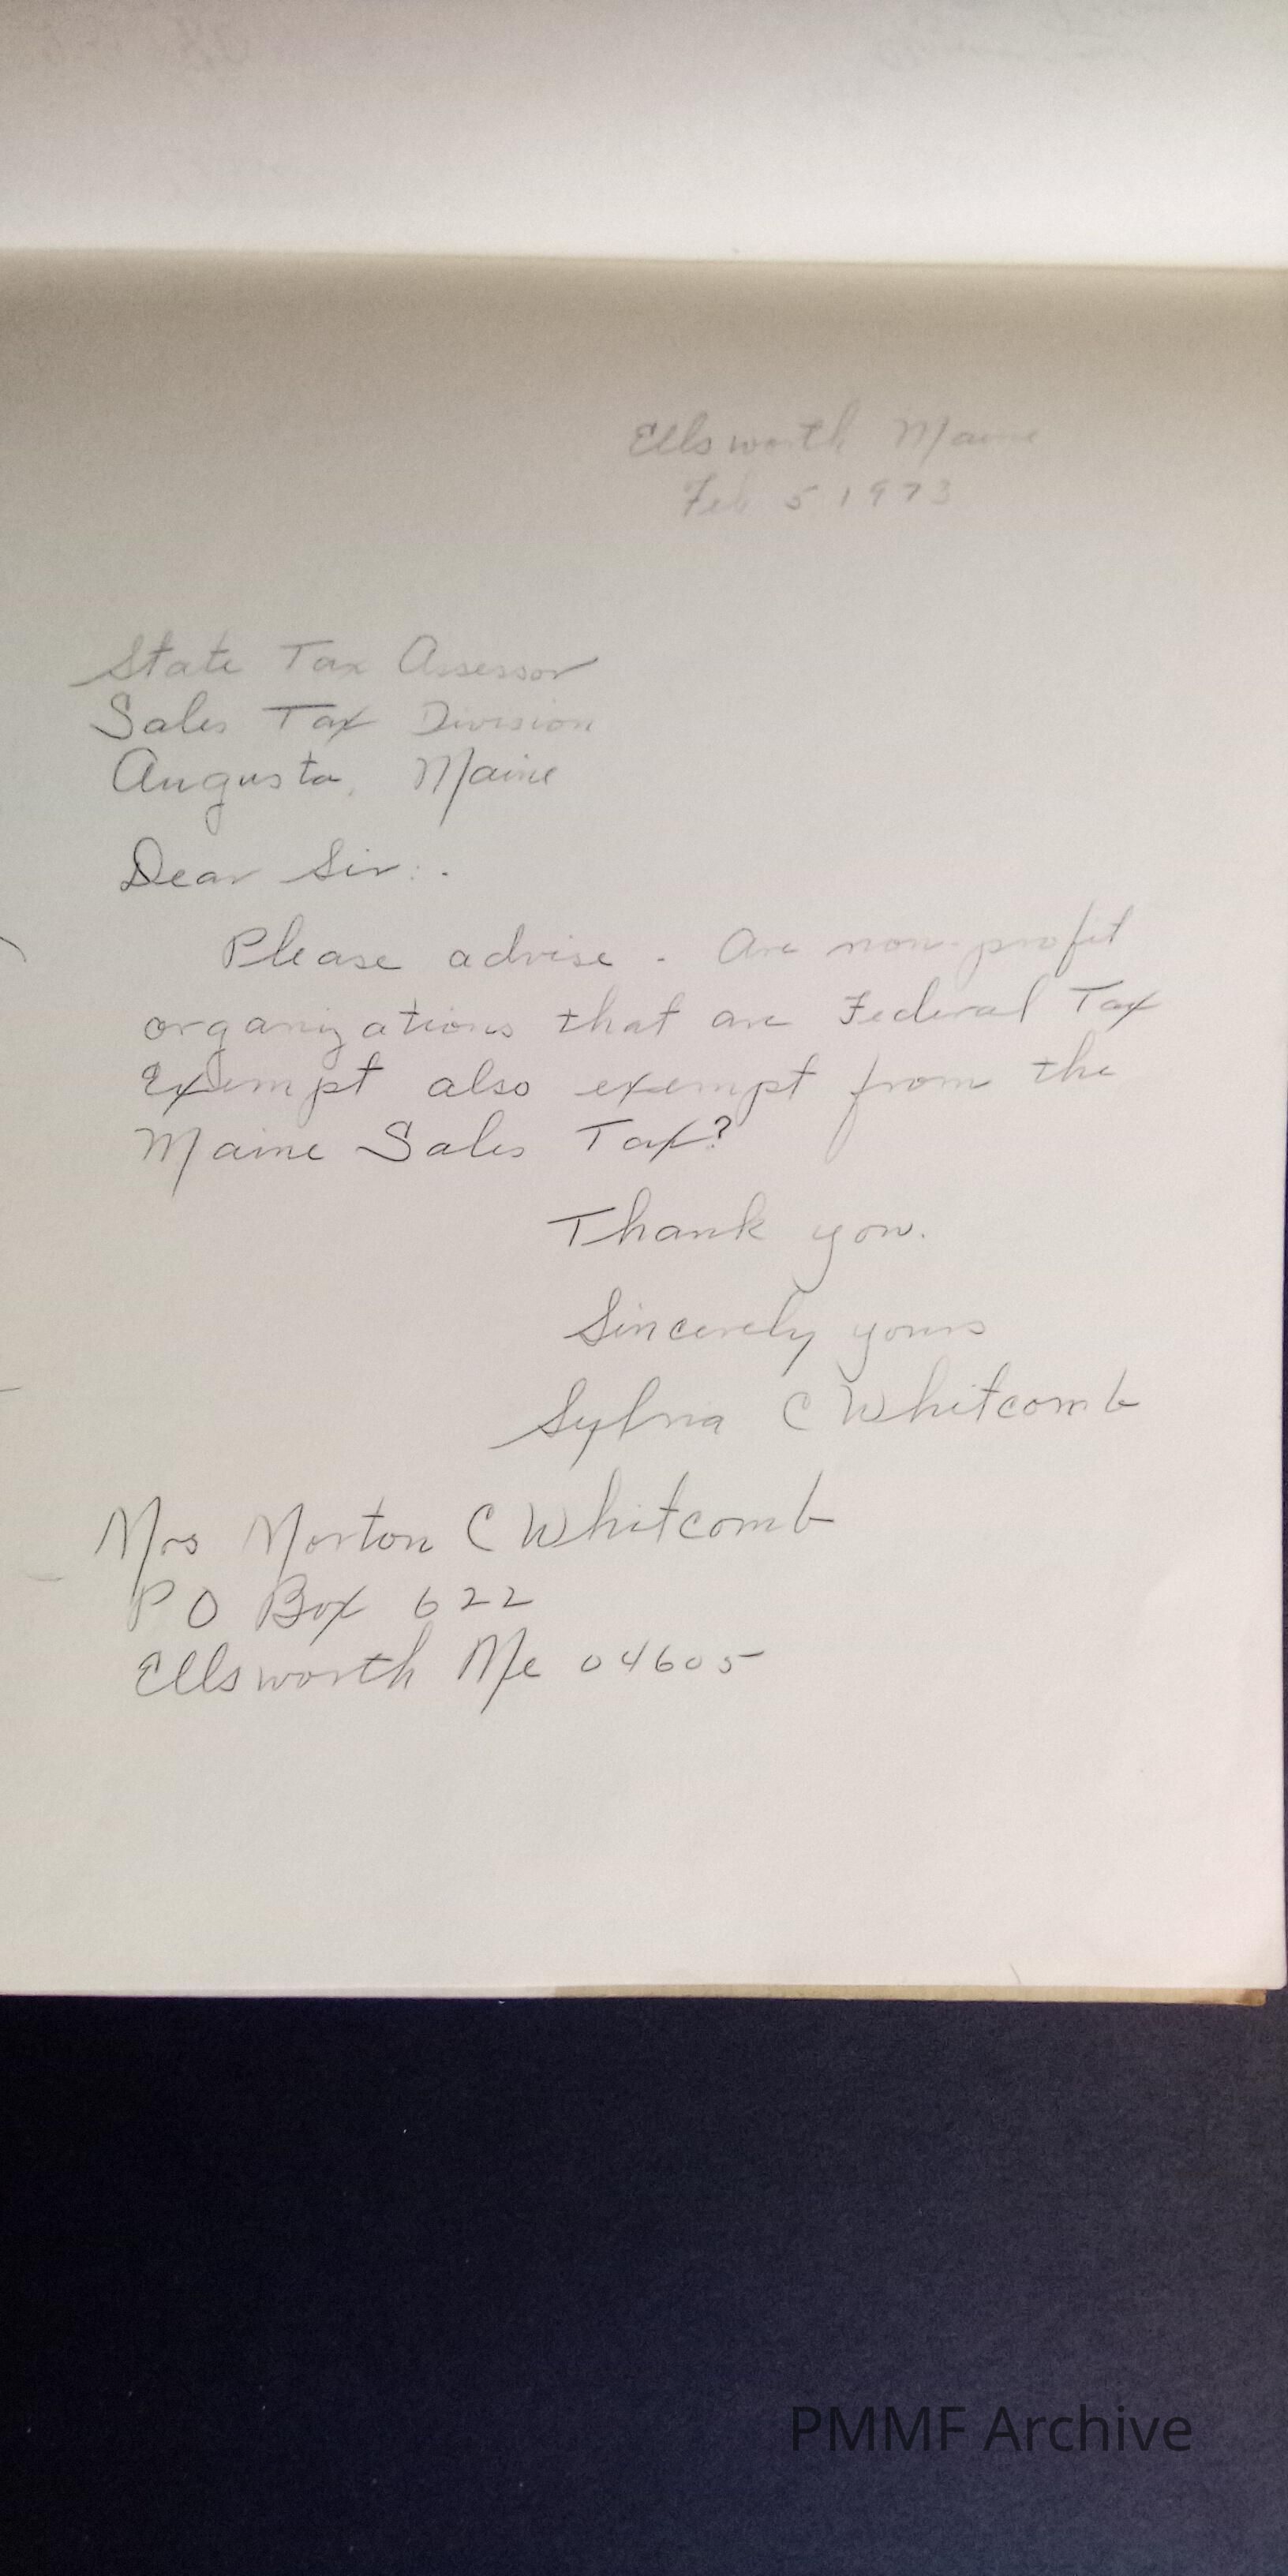 Ellsworth Maine
Feb 5 1973
State Tax Assessor
Sales Tax Division
Augusta, Maine
Dear Sir:.
Please advise. Are non-profit
organizations that are Federal Tax
Exempt also exempt from the
Maine Sales Tax?
Thank you.
Sincerely yours
Sylvia C Whitcomb
Mrs Morton C Whitcomb
PO Box 622
Ellsworth Me 04605
PMMF Archive